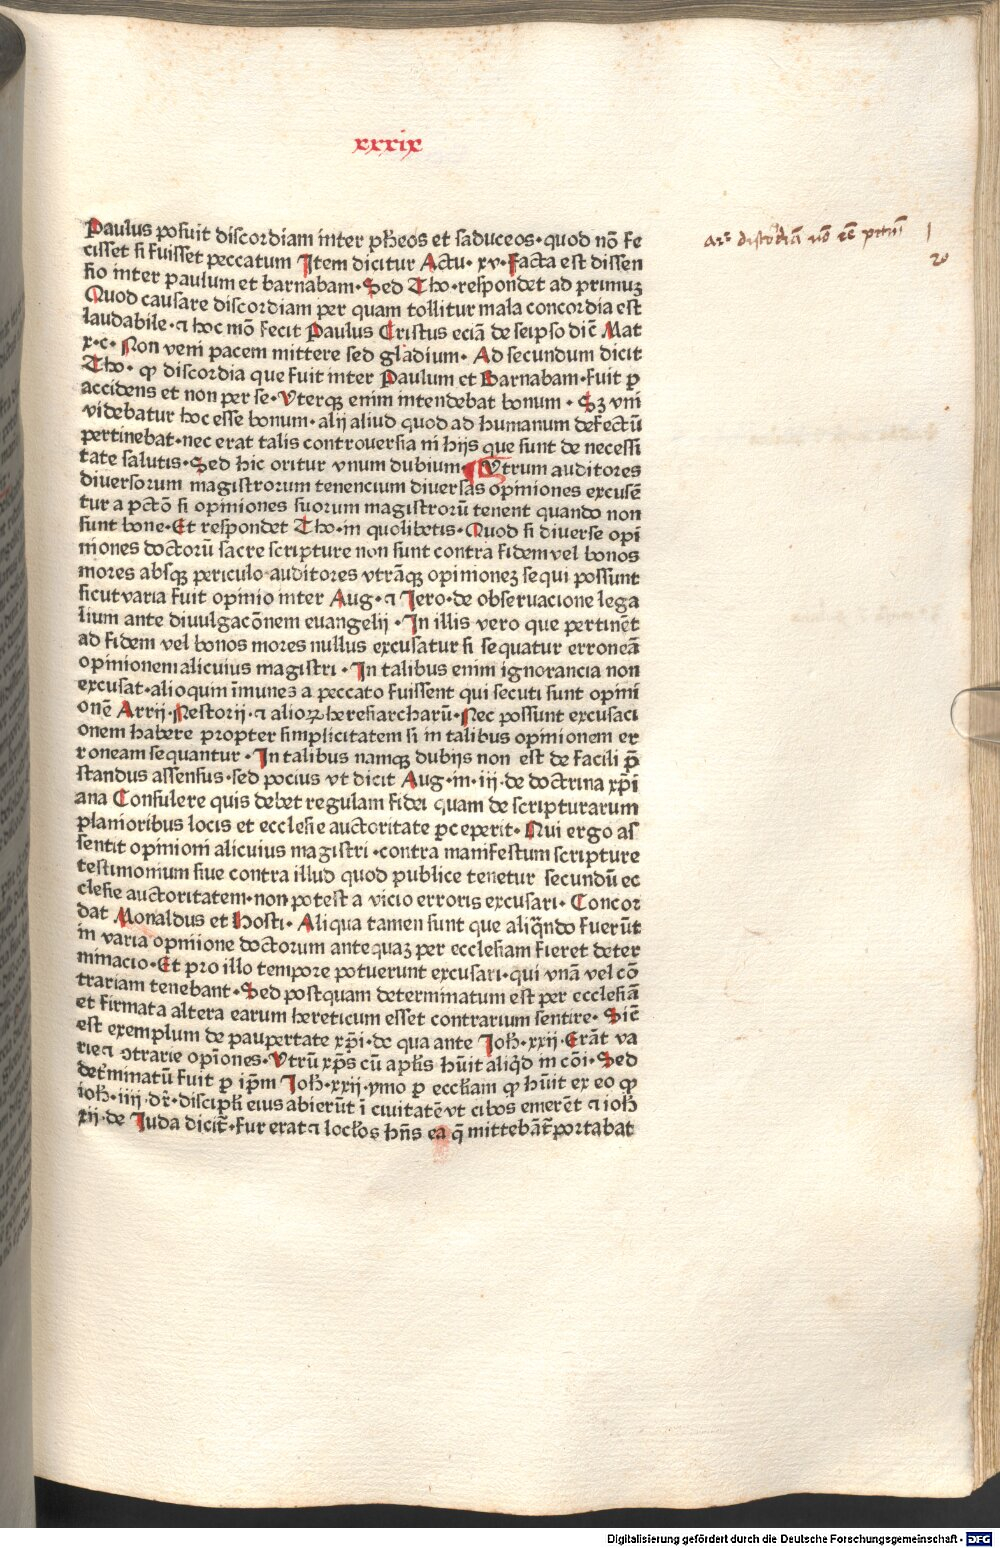 xxxix
Paulus posuit discordiam inter pħeos et saduceos·quod nō fe
cisset si fuisset peccatum Item dicitur Actu·xv·Facta est dissen
sio inter paulum et barnabam·Sed Tho·respondet ad primuꝫ
Quod causare discordiam per quam tollitur mala concordia est
laudabile·⁊ hoc mō fecit Paulus Cristus eciā de seipso dic̄ Mat
x·c·Non veni pacem mittere sed gladium·Ad secundum dicit
Tho·ꝙ discordia que fuit inter Paulum et Barnabam·fuit ꝑ
accidens et non per se·Uterqꝫ enim intendebat bonum·Sꝫ vni
videbatur hoc esse bonum·alij aliud quod ad humanum defectū
pertinebat·nec erat talis controversia in hijs que sunt de necessi
tate salutis·Sed hic oritur vnum dubium·Utrum auditores
diversorum magistrorum tenencium diversas opiniones excusē
tur a pctō si opiniones suorum magistrorū tenent quando non
sunt bone·Et respondet Tho·in quolibetis·Quod si diverse opi
niones doctorū sacre scripture non sunt contra fidem vel bonos
mores absqꝫ periculo auditores vtrāqꝫ opinioneꝫ sequi possunt
sicut varia fuit opinio inter Aug·⁊ Jero·de observacione lega
lium ante divulgacōnem euangelij·In illis vero que pertinēt
ad fidem vel bonos mores nullus excusatur si sequatur erroneā
opinionem alicuius magistri·In talibus enim ignorancia non
excusat·alioqum īmunes a peccato fuissent qui secuti sunt opini
onē Arrij·Nestorij·⁊ alioꝝ heresiarcharū·Nec possunt excusaci
onem habere propter simplicitatem si in talibus opinionem er
roneam sequantur·In talibus namqꝫ dubijs non est de facili p̄
standus assensus·sed pocius vt dicit Aug·in·iij·de doctrina xp̄i
ana Consulere quis debet regulam fidei quam de scripturarum
planioribus locis et ecclesie auctoritate ꝑceperit·Qui ergo as
sentit opinioni alicuius magistri·contra manifestum scripture
testimonium siue contra illud quod publice tenetur secundū ec
clesie auctoritatem·non potest a vicio erroris excusari·Concor
dat Monaldus et Hosti·Aliqua tamen sunt que aliq̄ndo fuerūt
in varia opinione doctorum antequaꝫ per ecclesiam fieret deter
minacio·Et pro illo tempore potuerunt excusari·qui vnā vel cō
trariam tenebant·Sed postquam determinatum est per ecclesiā
et firmata altera earum hereticum esset contrarium sentire·Sic̄
est exemplum de paupertate xp̄i·de qua ante Joħ·xxij·Erāt va
rie ⁊ ↄtrarie opīones·Utrū xp̄s cū apłis hūit aliq̄d in cōi·Sed
det̄minatū fuit ꝑ ip̄m Joħ·xxij·ymo ꝑ eccłiam ꝙ hūit ex eo ꝙ
ioħ·iiij·dr̄·discipłi eius abierūt ī civitatē vt cibos emerēt ⁊ ioħ
xij·de Juda dicit̄·fur erat ⁊ locłos hn̄s ea q̄ mittebāt̄ portabat